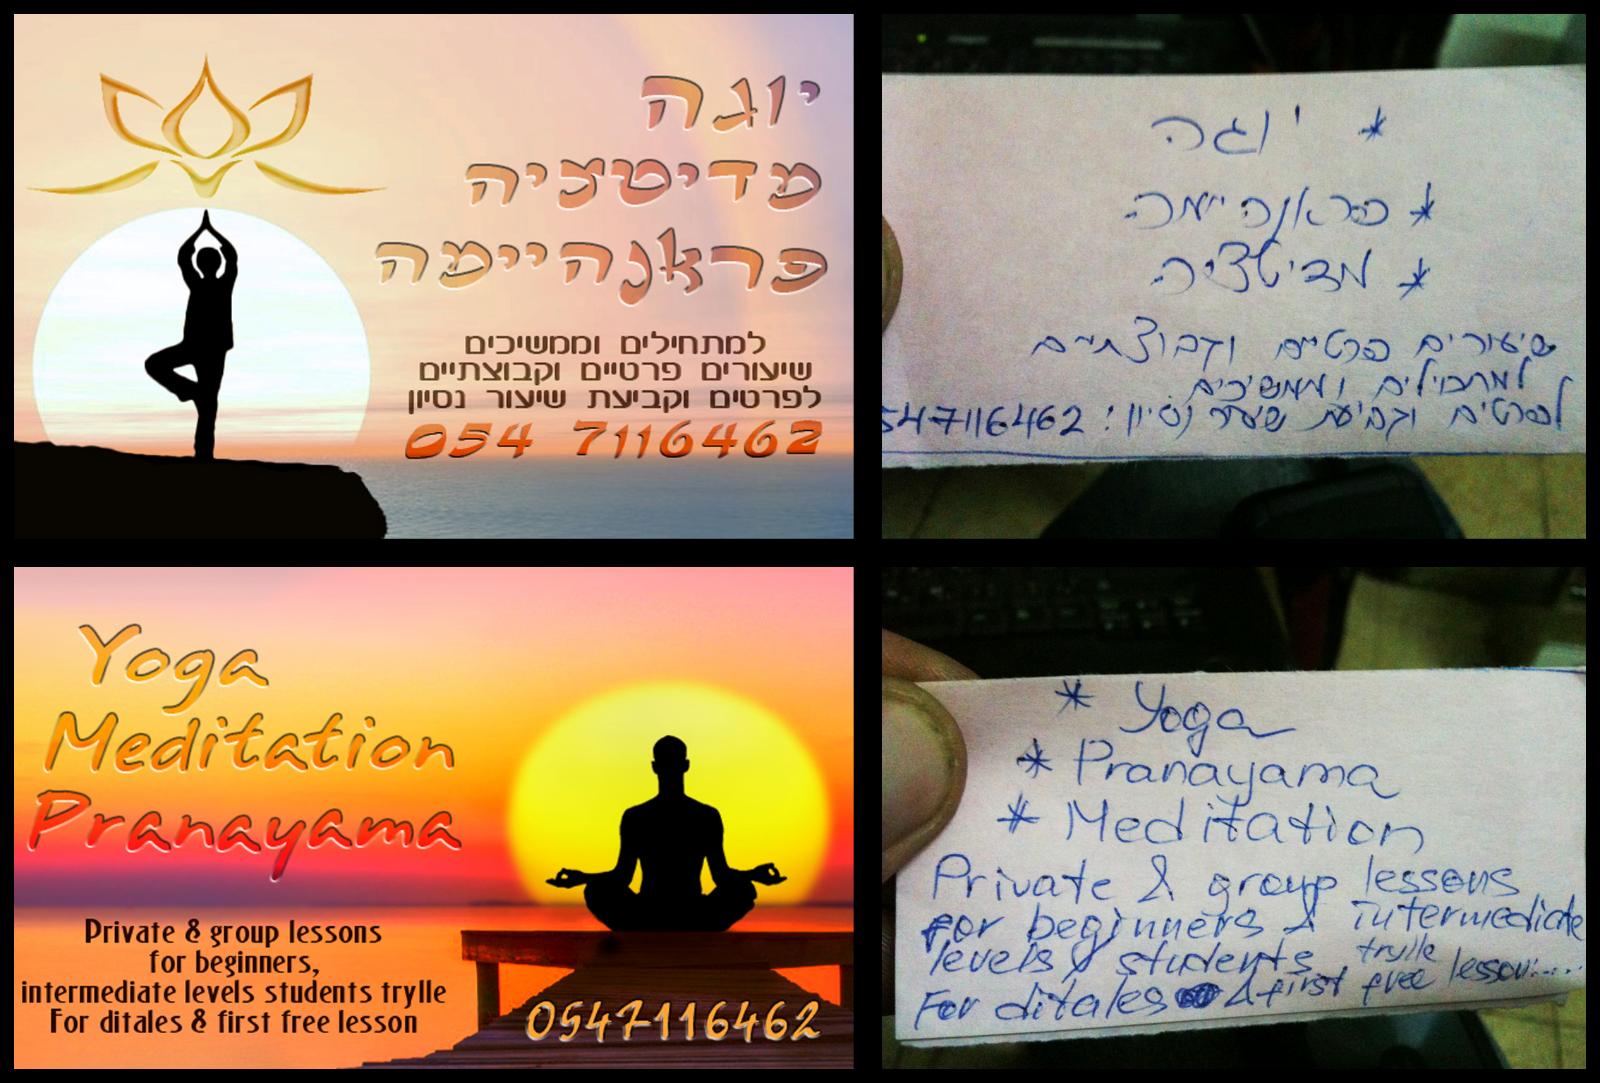 יוגה
מדיטציה
פראנהיימה
למתחילים וממשיכים
שיעורים פרטיים וקבוצתיים
לפרטים וקביעת שיעור נסיון
054 7116462
* יוגה
* פראנהיימה
* מדיטציה
שיעורים פרטיים וקבוצתיים
למתחילים וממשיכים
לפרטים וקביעת שעור נסיון: 547116462
Yoga
Meditation
Pranayama
Private & group lessons
for beginners,
intermediate levels students trylle
For ditales & first free lesson
0547116462
* Yoga
* Pranayama
* Meditation
Private & group lessons
for beginners & intermediate
levels students trylle
For ditales & first free lesson:....